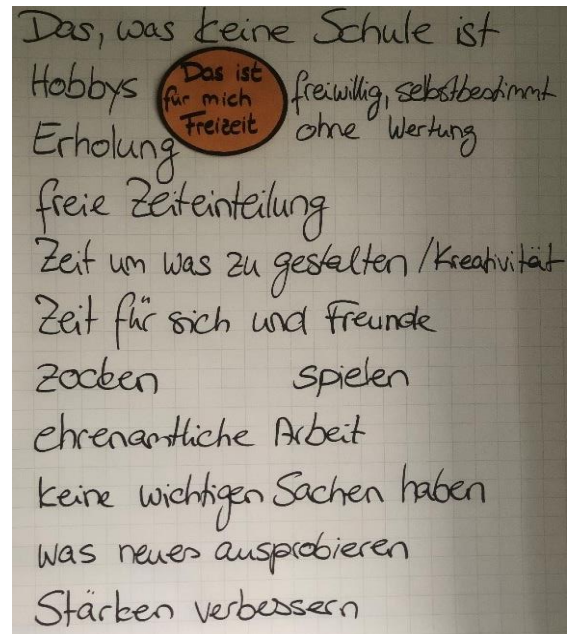 Das, was keine Schule ist
Hobbys
Das ist
für mich
Freizeit
freiwillig, selbstbestimmt
ohne Wertung
Erholung
freie Zeiteinteilung
Zeit um was zu gestalten / Kreativität
Zeit für sich und Freunde
zocken spielen
ehrenamtliche Arbeit
keine wichtigen Sachen haben
was neues ausprobieren
Stärken verbessern